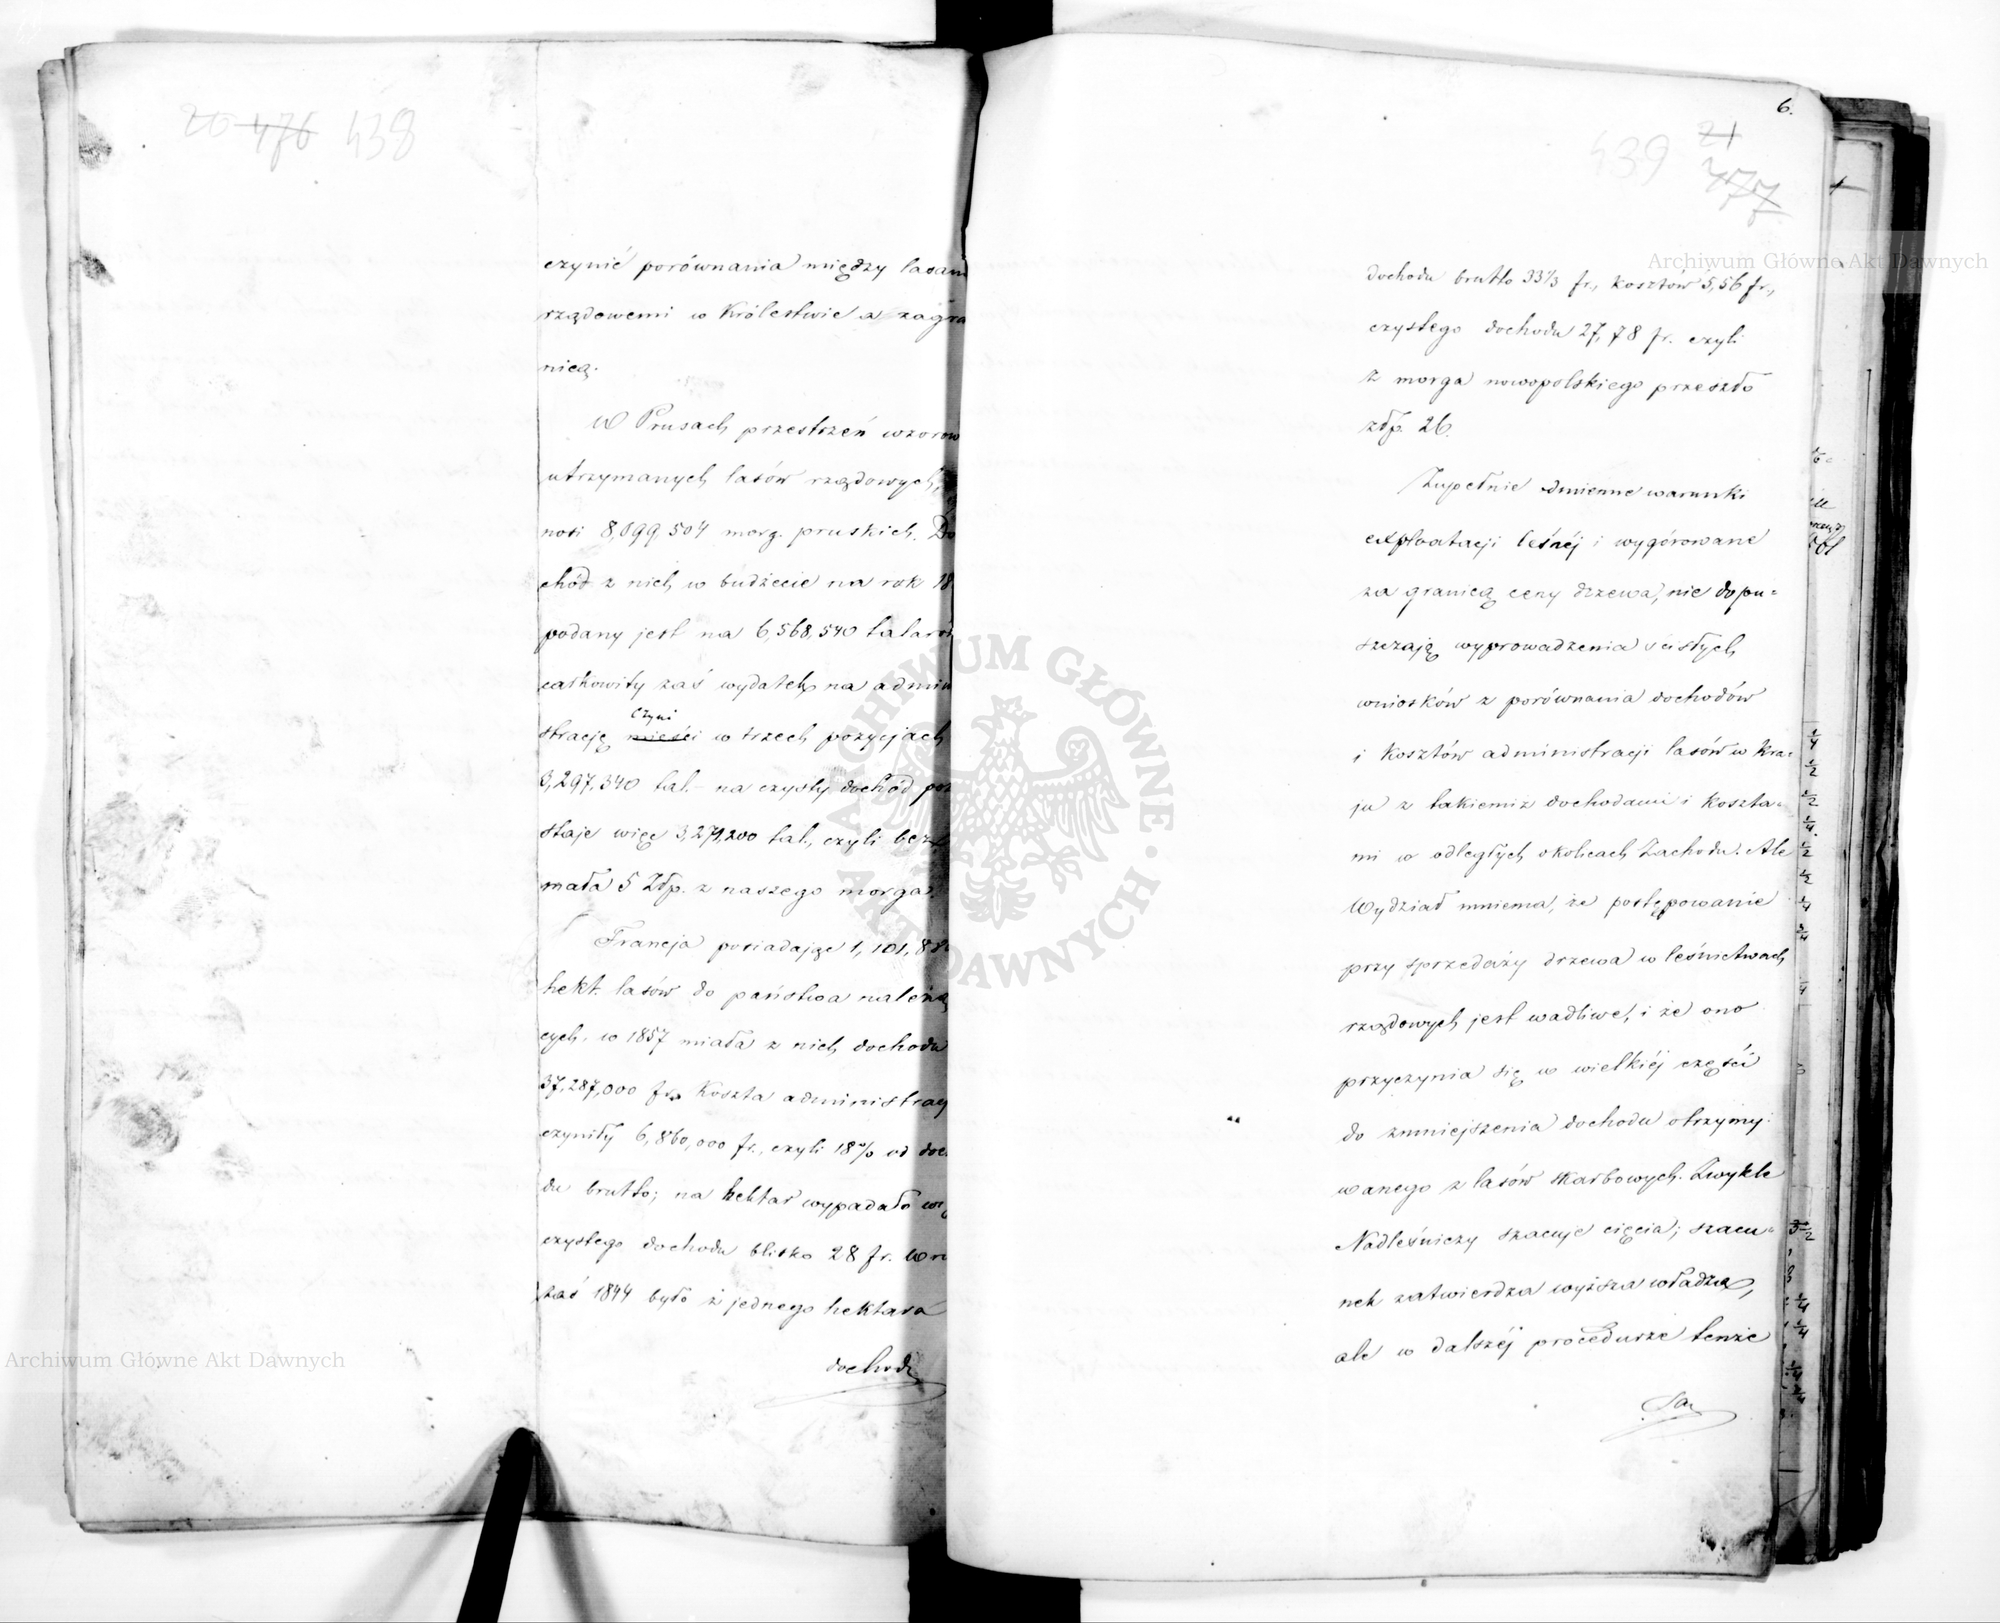 20 476 438
czynić porównania między lasami
rządowemi w Królestwie a zagra
nicą.
W Prusach przestrzeń wzorow
utrzymanych lasów rządowych,
nosi 8,099,504 morg. pruskich. Do
chód z nich w budżecie na rok 18
podany jest na 6,568,540 talarów
całkowity zaś wydatek na admini
czyni
strację mieści w trzech pozycjach
3,297,340 tal. na czysty dochód poz
staje więc 3,271,200 tal., czyli bez
mała 5 Złp. z naszego morga.
Francja posiadając 1,101,8
hekt. lasów do państwa należą
cych, w 1857 miała z nich dochodu
37,287,000 fr. Koszta administracj
czyniły 6,860,000 fr., czyli 18% od doch
du brutto; na hektar wypadało wię
czystego dochodu blisko 28 fr. W ro
zaś 1844 było z jednego hektara
dochod
6.
439 21
477
dochodu brutto 33 1/3 fr., kosztów 5,56 fr.,
czystego dochodu 27,78 fr. czyli
z morga nowopolskiego przeszło
złp. 26.
Zupełnie odmienne warunki
exploatacji leśnéj i wygórowane
za granicą ceny drzewa, nie dopu=
szczają wyprowadzenia ścisłych
wniosków z porównania dochodów
i kosztów administracji lasów w kra=
ju z takiemiż dochodami i koszta=
mi w odległych okolicach Zachodu. Ale
Wydział mniema, że postępowanie
przy sprzedaży drzewa w leśnictwach
rządowych jest wadliwe, i że ono
przyczynia się w wielkiéj części
do zmniejszenia dochodu otrzymy=
wanego z lasów skarbowych. Zwykle
Nadleśniczy szacuje cięcia; szacu=
nek zatwierdza wyższa władza,
ale w dalszéj procedurze tenże
Archiwum Główne Akt Dawnych
Archiwum Główne Akt Dawnych
ARCHIWUM GŁÓWNE AKT DAWNYCH